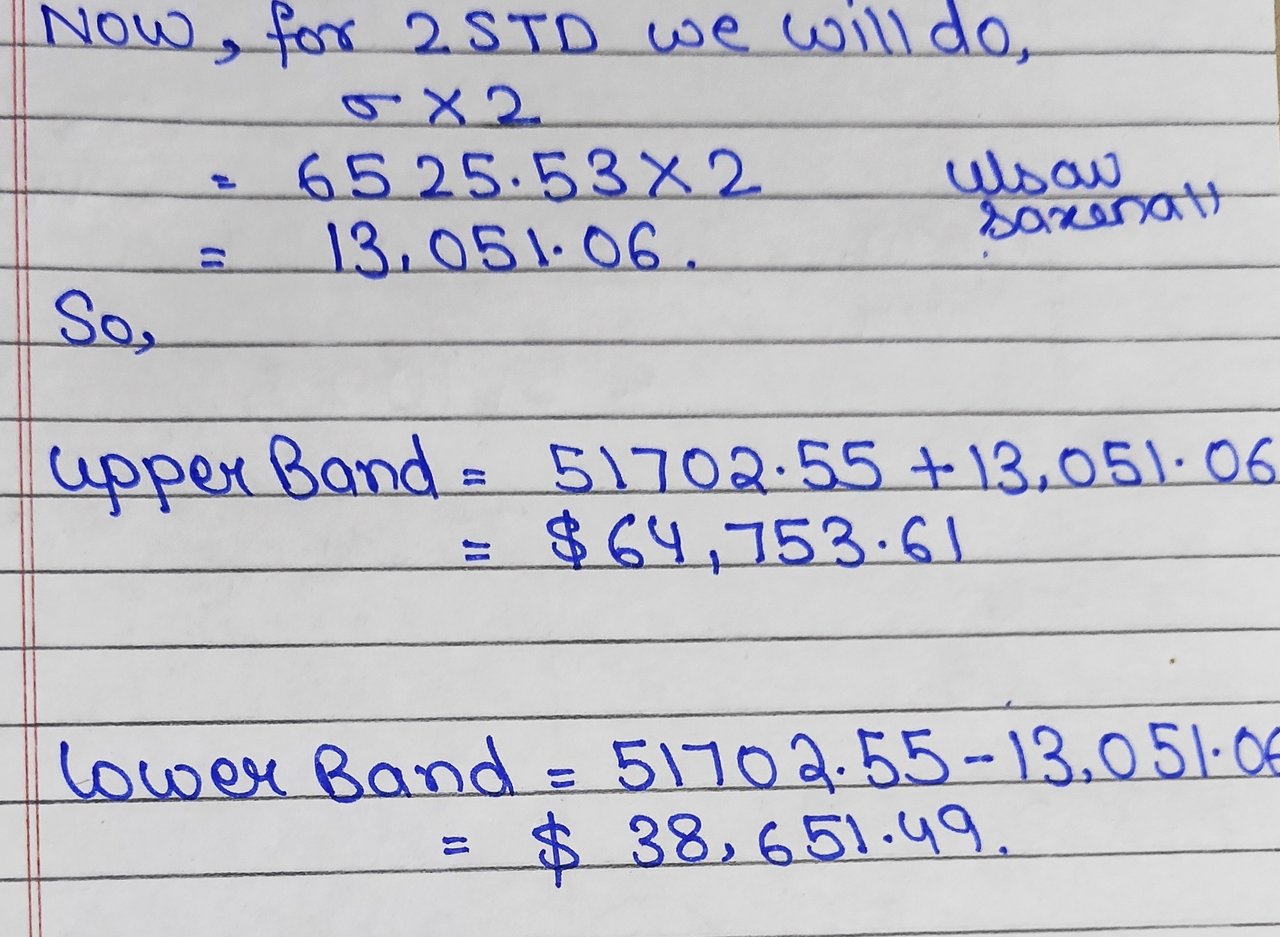 Now, for 2 STD we will do,
σ × 2
= 6525.53 × 2
= 13,051.06.
saxena
So,
Upper Band = 51702.55 + 13,051.06
= $64,753.61
Lower Band = 51702.55 - 13,051.06
= $ 38,651.49.